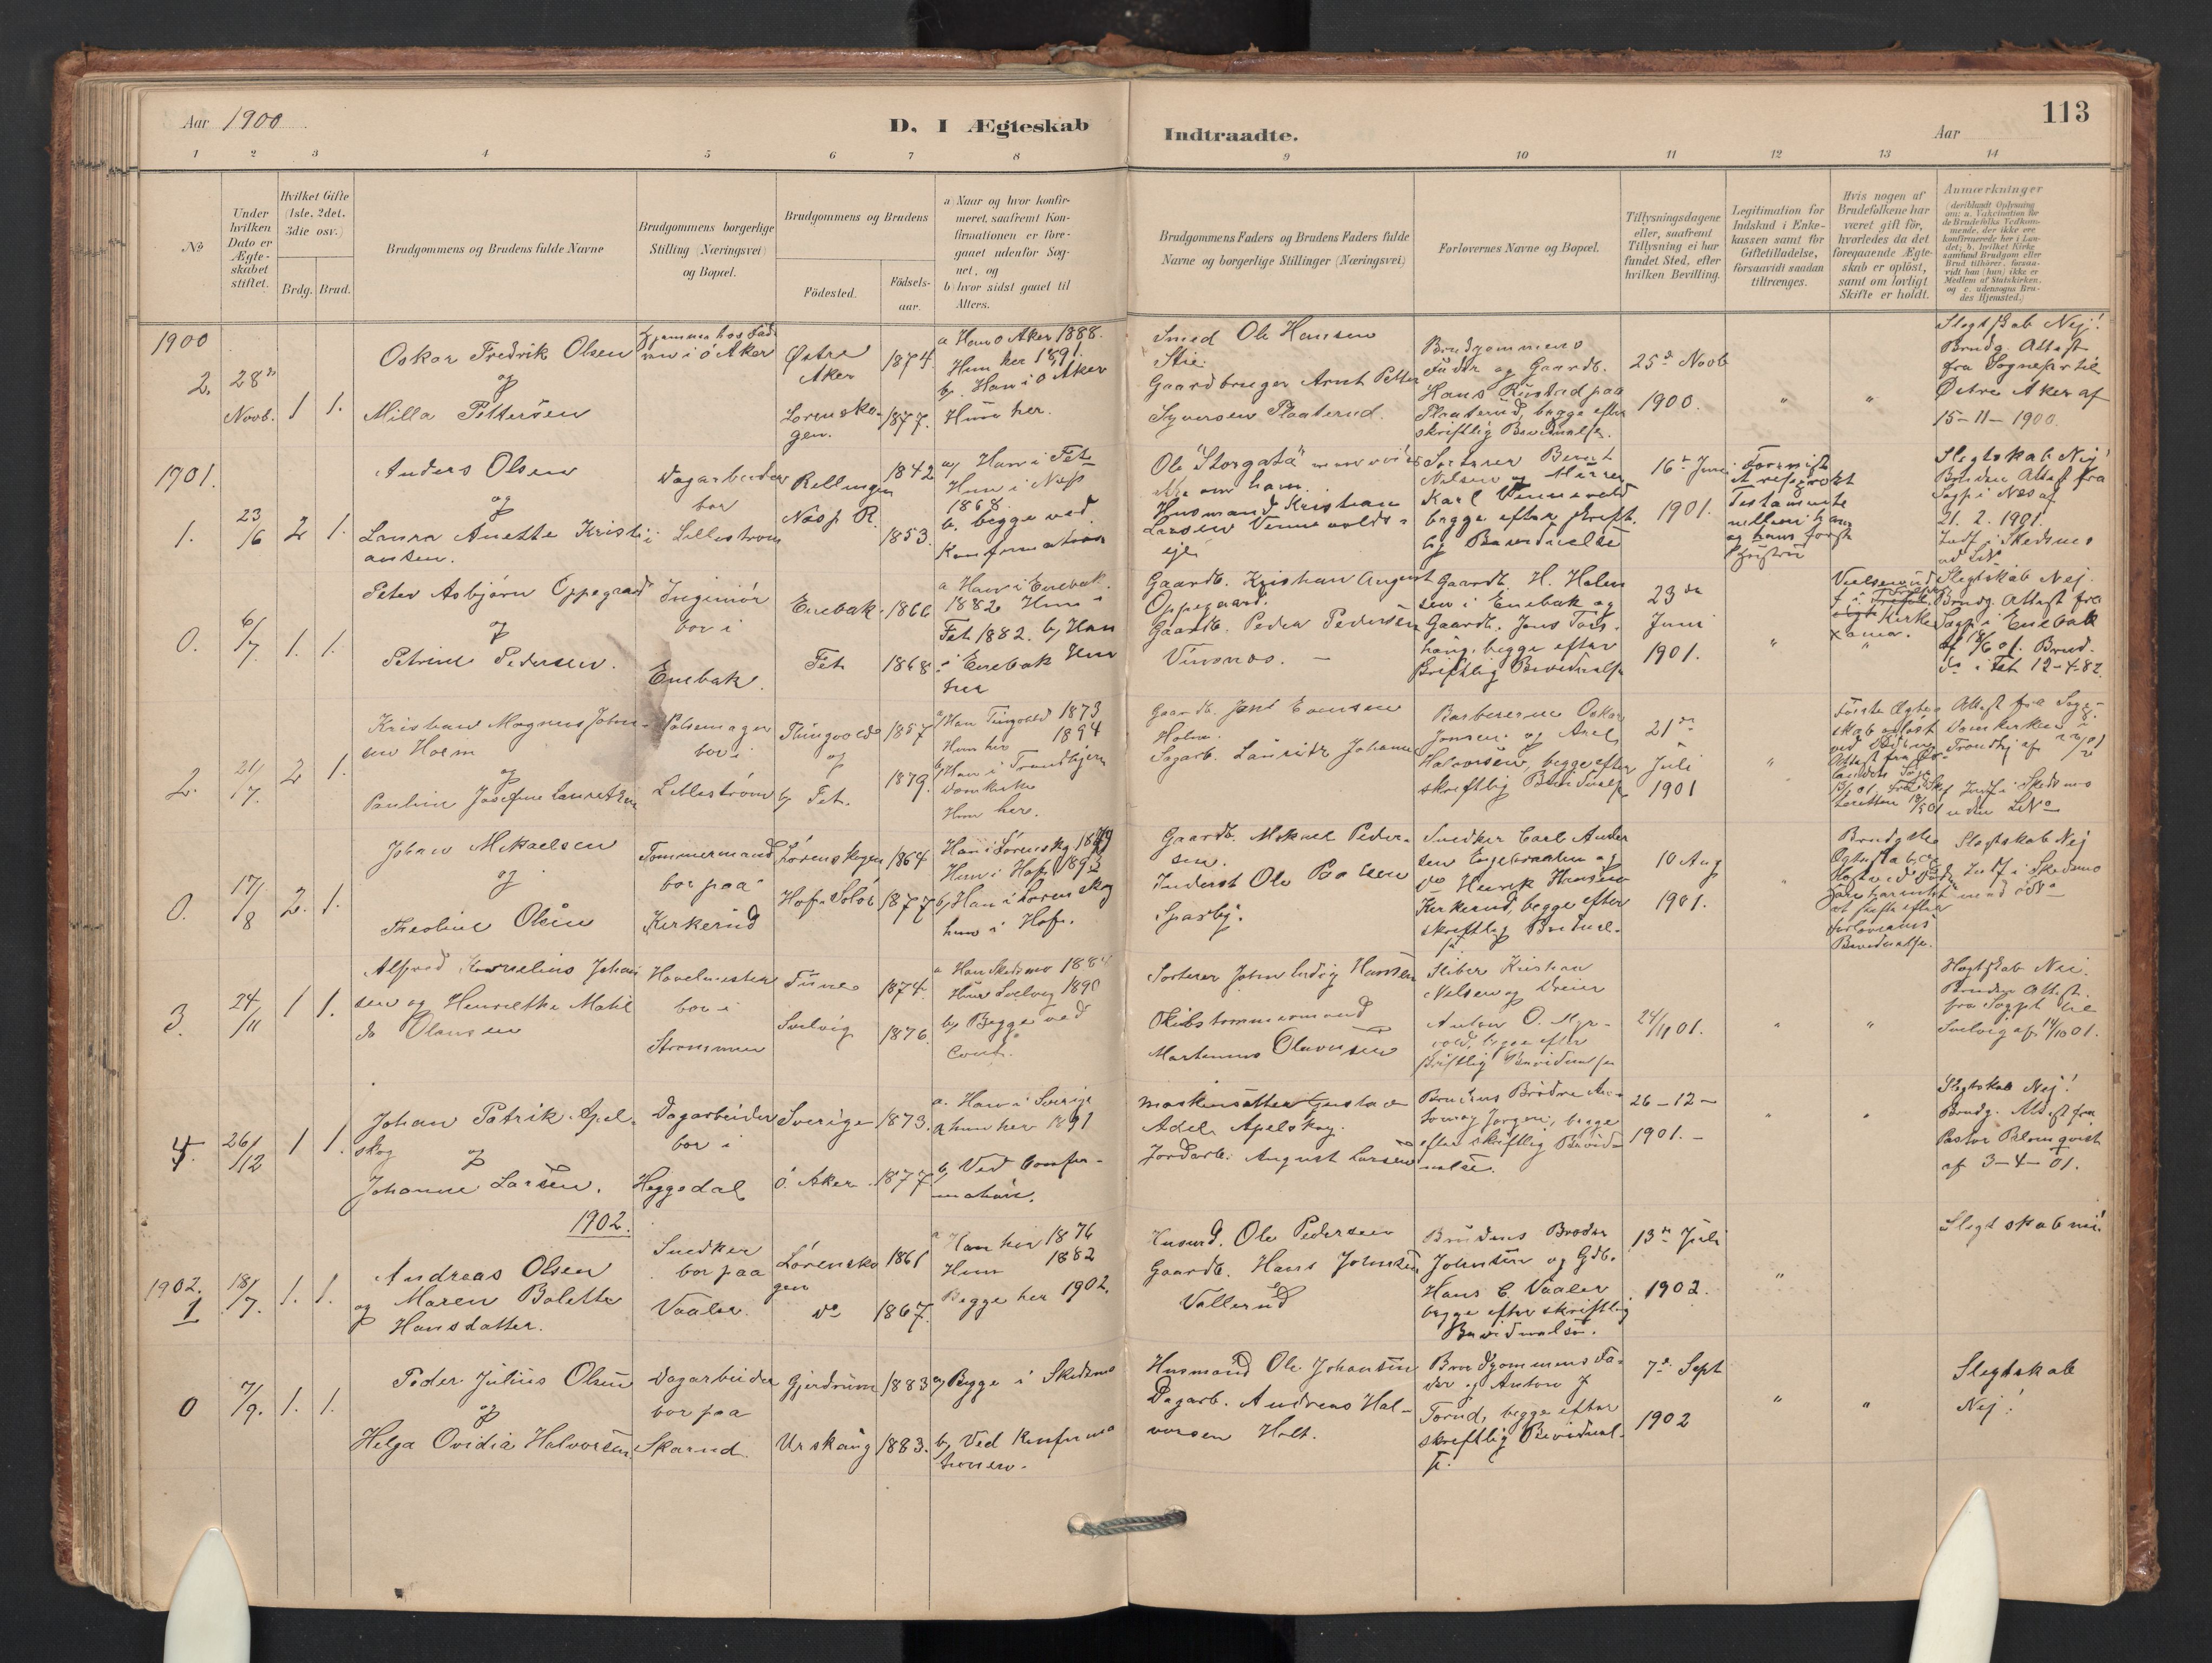 Aar 1900
D. I Ægteskab
Indtraadte.
Aar
113
1 2 3 4 5 6 7 8 9 10 11 12 13 14
No
Under hvilken Dato er Ægte-skabet stiftet.
Hvilket Gifte (1ste, 2det, 3die osv.)
Brdg. Brud.
Brudgommens og Brudens fulde Navne
Brudgommens borgerlige Stilling (Næringsvei) og Bopæl.
Brudgommens og Brudens
Fødested.
Fødsels-aar.
a) Naar og hvor konfir-
meret, saafremt Kon-
firmationen er fore-
gaaet udenfor Sog-
net, og
b) hvor sidst gaaet til
Alters.
Brudgommens Faders og Brudens Faders fulde
Navne og borgerlige Stillinger (Næringsvei)
Forlovernes Navne og Bopæl.
Tillysningsdagene
eller, saafremt
Tillysning ei har
fundet Sted, efter
hvilken Bevilling.
Legitimation for
Indskud i Enke-
kassen samt for
Giftetilladelse,
forsaavidt saadan
tiltrænges.
Hvis nogen af
Brudefolkene har
været gift før,
hvorledes da det
foregaaende Ægte-
skab er opløst,
samt om lovligt
Skifte er holdt.
Anmærkninger
(deriblandt Oplysning
om: a. Vakcination for
de Brudefolks Vedkom-
mende, der ikke ere
konfirmerede her i Lan-
det; b. hvilket Kirke
samfund Brudgom eller
Brud tilhører, forsaa-
vidt han (hun) ikke er
Medlem af Statskirken,
og c. udensogns Bru-
des Hjemsted.)
1900
2. 28de Novb. 1 1.
Oskar Fredrik Olsen
og
Milla Pettersen
Hjemme hos Fade
ren i Ø Aker
Østre
Aker
1874.
Lørensko-
gen.
1877.
a Han Ø Aker 1888.
Hun her 1891.
b. Han i Ø Aker
Hun her.
Smed Ole Hansen
Stie.
Gaardbruger Arnt Petter
Syversen Plaaterud.
Brudgommens
Fader og Gaardb.
Hans Rustad paa
Plaaterud, begge efter
skriftlig Bevidnelse.
25de Novb
1900.
" "
Slegtskab Nej!
Brudg. Attest
fra Sogneprstil
Østre Aker af
15-11-1900.
1901.
1. 23/6 2 1.
Anders Olsen
og
Laura Anette Kristi
ansen.
Dagarbeider
bor
i Lillestrøm
Rellingen
Næs p. R.
1842
1853.
a) Han i Fet
Hun i Næs
1868.
b. begge ved
Konfirmation
Ole "Storgata"
ikke om ham.
Husmand Kristian
Larsen Vennevolds-
eje
Sorterer Bernt
Nilsen og Murer
Karl Vennevold
begge efter skrift-
lig Bevidnelse
16de Juni
1901.
Forevist
et reciprokt
Testamente
mellem ham
og hans første
Hustru
Slegtskab Nej
Bruden Attest fra
Sogp i Næs af
21. 2. 1901.
Indf i Skedsmo
ud LNo
0. 6/7 1. 1.
Peter Asbjørn Oppegaard
og
Petrine Pedersen.
Ingeniør
bor i
Enebak.
Enebak. 1866
Fet 1868
a Han i Enebak.
1882 Hun i
Fet 1882. b) Han
i Enebak Hun
her
Gaardb. Kristian August
Oppegaard.
Gaardb. Peder Pedersen
Vinsnes. —
Gaardb. H. Halen
sen i Enebak og
Gaardb. Jens Tors-
haug, begge efter
skriftlig Bevidnelse
23de
Juni
1901.
"
Kirke
Slegtskab Nej.
Brudg. Attest fra
Sogp i Enebak
af 18/6 01. Brud.
do i Fet 12-4-82.
2. 21/7. 2 1.
Kristian Magnus John-
sen Holm
og
Pauline Josefine Lauritzen
Pølsemager
bor i
Lillestrøm
Thingvold
og
b) Fet.
1857
1879.
a) Han Tingvold 1873
Hun her 1894
b) Han i Trondhjem
Domkirke
Hun her.
Gaardb. Jens Hansen
Holm.
Sagarb. Lauritz Johann
Barbererne Oskar
Jonsen og Axel
Halvorsen, begge efter
skriftlig Bevidnelse
21de
Juli
1901
"
Første Ægte
skab opløst
ved Døden
Attest fra
Attest fra Sogp.
Domkirken i
Trondhj af
Indf i Skedsmo
uden LNo
0. 17/8 2. 1.
Johan Mikaelsen
og
Theoline Olsen
Tømmermand
bor paa
Kirkerud
Lørenskogen 1864
Hof. Solør 1877
Han i Lørenskg 1879
Hun i Hof. 1893
b) Han i Lørenskog
hun i Hof.
Gaardb. Mikael Peder-
sen.
Inderst Ole Bolsen
Sparby.
Snedker Carl Ander
sen Engebraaten og
do Henrik Hansen
Kirkerud, begge efter
skriftlig Bevidnel-
se
10 Aug
1901.
Slegtskab Nej
Indf i Skedsmo
med No
3. 24/11 1 1.
Alfred Kornelius Johan
sen og Henriette Matil
de Olausen
Høvelmester
bor i
Strømmen
Tune
Svelvig
1874.
1876.
a Han Skedsmo 188
Hun Svelvig 1890
b) Begge ved
Conf.
Sorterer John Ludvig Hansen
Skibstømmermand
Martinus Olavesen
Sliber Kristian
Nilsen og Dreier
Anton O. Myr-
vold, begge efter
skriftlig Bevidnelse
24/11 01.
" "
Slegtskab Nei.
Bruden Attest.
fra Sogpt til
Svelvig af 14/10 01.
4. 26/12 1 1.
Johan Patrik Apel-
skog
og
Johanne Larsen.
Dagarbeider
bor i
Heggedal
Sverige 1873.
Ø. Aker. 1877
a. Han i Sverige
a hun her 1891
b) Ved Confir-
mation.
Maskinsætter Gustav
Adel. Apelskog.
Jordarb. August Larsen
Brudens Brødre An-
ton og Jørgen, begge
efter skriftlig Bevid-
nelse.
26-12-
1901.-
" "
Slegtskab Nej!
Brudg. Attest fra
Pastor Blomqvist
af 3-4-01.
1902.
1902. 1 18/7. 1. 1.
Andreas Olsen
og Maren Bolette
Hansdatter.
Snedker
bor paa
Vaaler.
Lørensko
gen
do
1861
1867.
a Han her 1876
Hun 1882
Begge her 1902.
Husmd. Ole Pedersen
Gaardb. Hans Johnsen
Vallerud
Brudens Broder
Johnsen og Gdb.
Hans C. Vaaler
begge efter skriftlig
Bevidnelse.
13de Juli
1902.
"
Slegtskab nei!
0 7/9. 1. 1.
Peder Julius Olsen
og
Helga Ovidia Halvorsen.
Dagarbeider
bor paa
Skarud.
Gjerdrum 1883
Urskaug 1883.
a) Begge i Skedsmo
b) Ved Konfirma
tionen.
Husmand Ole Johansen
Dagarb. Andreas Hal-
vorsen Holt.
Brudgommens Fa-
der og Anton J
Torud, begge efter
skriftlig Bevidnel-
se.
7de Sept
1902
" "
Slegtskab
Nej!